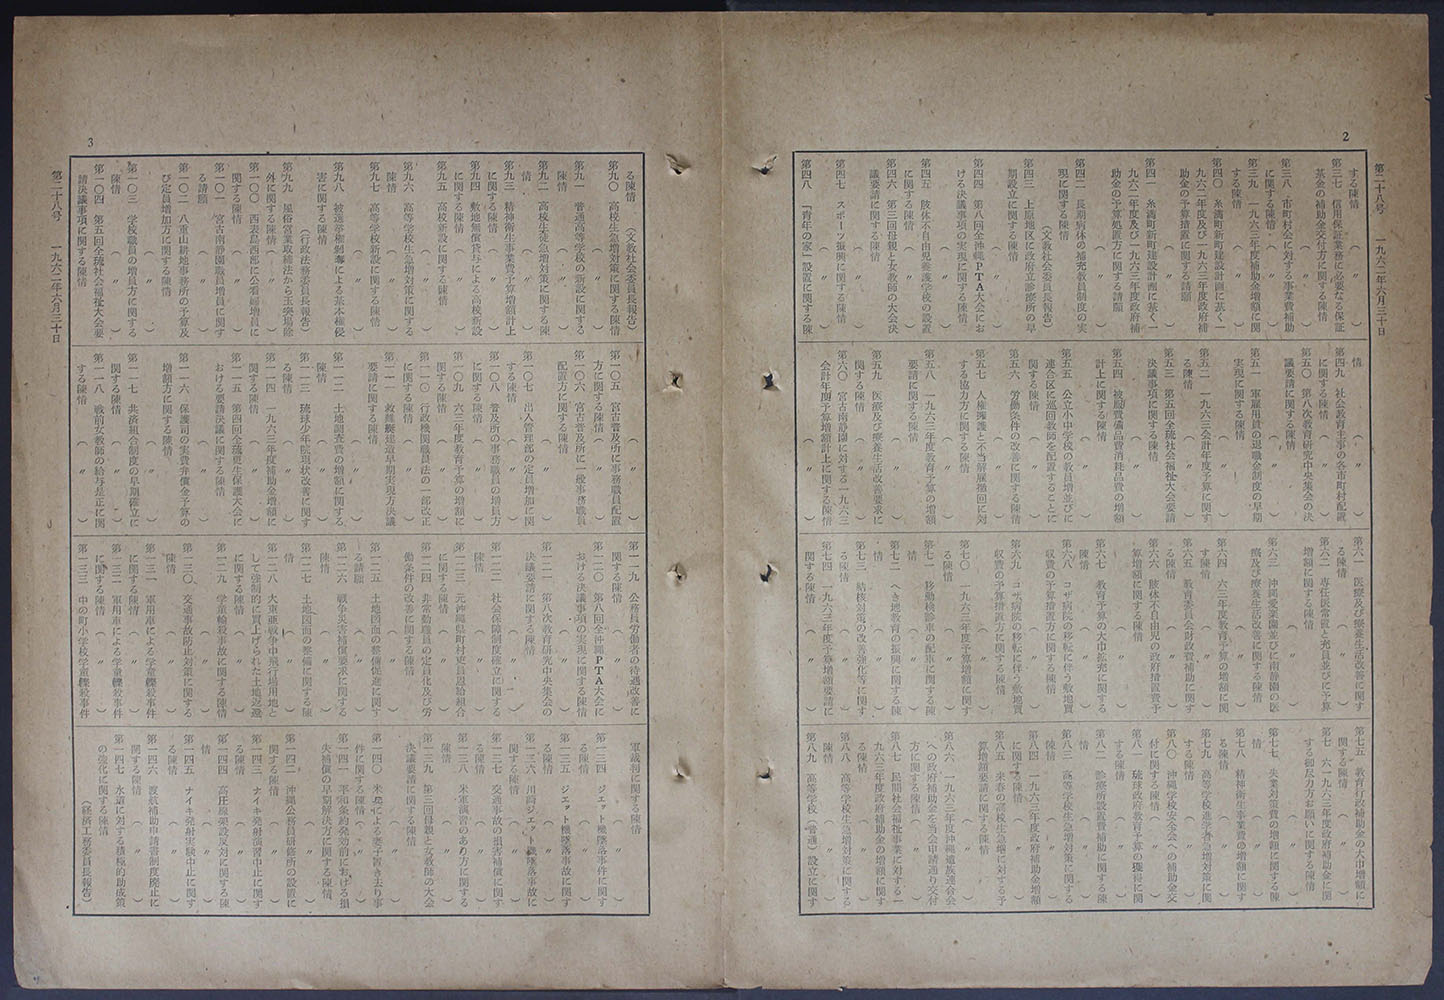 2
第二十八号　一九六二年六月三十日
する陳情　（　〃　）
第三七　信用保証業務に必要なる保証
基金の補助金交付方に関する陳情
（　〃　）
第三八　市町村会に対する事業費補助
に関する陳情　（　〃　）
第三九　一九六三年度補助金増額に関
する陳情　（　〃　）
第四〇　糸満町新町建設計画に基く一
九六二年度及び一九六三年度政府補
助金の予算措置に関する請願
（　〃　）
第四一　糸満町新町建設計画に基く一
九六二年度及び一九六三年度政府補
助金の予算処置方に関する請願
（　〃　）
第四二　長期病休の補充教員制度の実
現に関する陳情
（文教社会委員長報告）
第四三　上原地区に政府立診療所の早
期設立に関する陳情
（　〃　）
第四四　第八回全沖縄ＰＴＡ大会にお
ける決議事項の実現に関する陳情
（　〃　）
第四五　肢体不自由児養護学校の設置
に関する陳情　（　〃　）
第四六　第三回母親と女教師の大会決
議要請に関する陳情
（　〃　）
第四七　スポーツ振興に関する陳情
（　〃　）
第四八　「青年の家」設置に関する陳
情　（　〃　）
第四九　社会教育主事の各市町村配置
に関する陳情　（　〃　）
第五〇　第八次教育研究中央集会の決
議要請に関する陳情
（　〃　）
第五一　軍雇用員の退職金制度の早期
実現に関する陳情
（　〃　）
第五二　一九六三会計年度予算に関す
る陳情　（　〃　）
第五三　第五回全琉社会福祉大会要請
決議事項に関する陳情
（　〃　）
第五四　被服費備品費消耗品費の増額
計上に関する陳情
（　〃　）
第五五　公立小中学校の教員増並びに
連合区に巡回教師を配置することに
関する陳情　（　〃　）
第五六　労働条件の改善に関する陳情
（　〃　）
第五七　人権擁護と不当解雇撤回に対
する協力方に関する陳情
（　〃　）
第五八　一九六三年度教育予算の増額
要請に関する陳情
（　〃　）
第五九　医療及び療養生活改善要求に
関する陳情　（　〃　）
第六〇　宮古南静園に対する一九六三
会計年度予算増額計上に関する陳情
（　〃　）
第六一　医療及び療養生活改善に関す
る陳情　（　〃　）
第六二　専任医常置と充員並びに予算
増額に関する陳情
（　〃　）
第六三　沖縄愛楽園並びに南静園の医
療及び療養生活改善に関する陳情
（　〃　）
第六四　六三年度教育予算の増額に関
する陳情　（　〃　）
第六五　教育委員会財政費補助に関す
る陳情　（　〃　）
第六六　肢体不自由児の政府措置費予
算増額に関する陳情
（　〃　）
第六七　教育予算の大巾拡充に関する
陳情　（　〃　）
第六八　コザ病院の移転に伴う敷地買
収費の予算措置方に関する陳情
（　〃　）
第六九　コザ病院の移転に伴う敷地買
収費の予算措置方に関する陳情
（　〃　）
第七〇　一九六三年度予算増額に関す
る陳情　（　〃　）
第七一　移動検診車の配車に関する陳
情　（　〃　）
第七二　へき地教育の振興に関する陳
情　（　〃　）
第七三　結核対策の改善強化等に関す
る陳情　（　〃　）
第七四　一九六三年度予算増額要請に
関する陳情　（　〃　）
第七五　教育行政補助金の大巾増額に
関する陳情　（　〃　）
第七六　一九六三年度政府補助金に関
する御尽力方お願いに関する陳情
（　〃　）
第七七　失業対策費の増額に関する陳
情　（　〃　）
第七八　精神衛生事業費の増額に関す
る陳情　（　〃　）
第七九　高等学校進学者急増対策に関
する陳情　（　〃　）
第八〇　沖縄学校安全会への補助金交
付に関する陳情　（　〃　）
第八一　琉球政府教育予算の獲得に関
する陳情　（　〃　）
第八二　診療所設置費補助に関する陳
情　（　〃　）
第八三　高等学校生急増対策に関する
陳情　（　〃　）
第八四　一九六三年度政府補助金増額
に関する陳情　（　〃　）
第八五　来春の高校生急増に対する予
算増額要請に関する陳情
（　〃　）
第八六　一九六三年度沖縄遺族連合会
への政府補助金を当会申請通り交付
方に関する陳情　（　〃　）
第八七　民間社会福祉事業に対する一
九六三年度政府補助金の増額に関す
る陳情　（　〃　）
第八八　高等学校生急増対策に関する
陳情　（　〃　）
第八九　高等学校（普通）設立に関す
3
第二十八号　一九六二年六月三十日
る陳情　（文教社会委員長報告）
第九〇　高校生急増対策に関する陳情
（　〃　）
第九一　普通高等学校の新設に関する
陳情　（　〃　）
第九二　高校生徒急増対策に関する陳
情　（　〃　）
第九三　精神衛生事業費予算増額計上
に関する陳情　（　〃　）
第九四　敷地無償貸与による高校新設
に関する陳情　（　〃　）
第九五　高校新設に関する陳情
（　〃　）
第九六　高等学校生急増対策に関する
陳情　（　〃　）
第九七　高等学校新設に関する陳情
（　〃　）
第九八　被選挙権剥奪による基本権侵
害に関する陳情
（行政法務委員長報告）
第九九　風俗営業取締法から玉突場除
外に関する陳情　（　〃　）
第一〇〇　西表島西部に公看婦増員に
関する陳情　（　〃　）
第一〇一　宮古南静園職員増員に関す
る請願　（　〃　）
第一〇二　八重山耕地事務所の予算及
び定員増加方に関する陳情
（　〃　）
第一〇三　学校職員の増員方に関する
陳情　（　〃　）
第一〇四　第五回全琉社会福祉大会要
請決議事項に関する陳情
（　〃　）
第一〇五　宮古普及所に事務職員配置
方に関する陳情　（　〃　）
第一〇六　宮古普及所に一般事務職員
配置方に関する陳情
（　〃　）
第一〇七　出入管理部の定員増加に関
する陳情　（　〃　）
第一〇八　普及所の事務職員の増員方
に関する陳情　（　〃　）
第一〇九　六三年度教育予算の増額に
関する陳情　（　〃　）
第一一〇　行政機関職員法の一部改正
に関する陳情　（　〃　）
第一一一　救難艇建造早期実現方決議
要請に関する陳情
（　〃　）
第一一二　土地調査費の増額に関する
陳情　（　〃　）
第一一三　琉球少年院現状改善に関す
る陳情　（　〃　）
第一一四　一九六三年度補助金増額に
関する陳情　（　〃　）
第一一五　第四回全琉更生保護大会に
おける要請決議に関する陳情
（　〃　）
第一一六　保護司の実費弁償金予算の
増額方に関する陳情
（　〃　）
第一一七　共済組合制度の早期確立に
関する陳情　（　〃　）
第一一八　戦前女教師の給与是正に関
する陳情　（　〃　）
第一一九　公務員労働者の待遇改善に
関する陳情　（　〃　）
第一二〇　第八回全沖縄ＰＴＡ大会に
おける決議事項の実現に関する陳情
（　〃　）
第一二一　第八次教育研究中央集会の
決議要請に関する陳情
（　〃　）
第一二二　社会保障制度確立に関する
陳情　（　〃　）
第一二三　元沖縄県町村吏員恩給組合
に関する陳情　（　〃　）
第一二四　非常勤職員の定員化及び労
働条件の改善に関する陳情
（　〃　）
第一二五　土地図面の整備促進に関す
る請願　（　〃　）
第一二六　戦争災害補償要求に関する
陳情　（　〃　）
第一二七　土地図面の整備に関する陳
情　（　〃　）
第一二八　大東亜戦争中飛行場用地と
して強制的に買上げられた土地返還
に関する陳情　（　〃　）
第一二九　学童輪殺事故に関する陳情
（　〃　）
第一三〇　交通事故防止対策に関する
陳情　（　〃　）
第一三一　軍用車による学童轢殺事件
に関する陳情　（　〃　）
第一三二　軍用車による学童轢殺事件
に関する陳情　（　〃　）
第一三三　中の町小学校学童轢殺事件
軍裁判に関する陳情
（　〃　）
第一三四　ジェット機墜落事件に関す
る陳情　（　〃　）
第一三五　ジェット機墜落事故に関す
る陳情　（　〃　）
第一三六　川崎ジェット機墜落事故に
関する陳情　（　〃　）
第一三七　交通事故の損害補償に関す
る陳情　（　〃　）
第一三八　米軍演習のあり方に関する
陳情　（　〃　）
第一三九　第三回母親と女教師の大会
決議要請に関する陳情
（　〃　）
第一四〇　米兵による妻子置き去り事
件に関する陳情　（　〃　）
第一四一　平和条約発効前における損
失補償の早期解決方に関する陳情
（　〃　）
第一四二　沖縄公務員研修所の設置に
関する陳情　（　〃　）
第一四三　ナイキ発射演習中止に関す
る陳情　（　〃　）
第一四四　高圧線架設反対に関する陳
情　（　〃　）
第一四五　ナイキ発射実験中止に関す
る陳情　（　〃　）
第一四六　渡航補助申請書制度廃止に
関する陳情　（　〃　）
第一四七　水道に対する積極的助成策
の強化に関する陳情
（経済工務委員長報告）